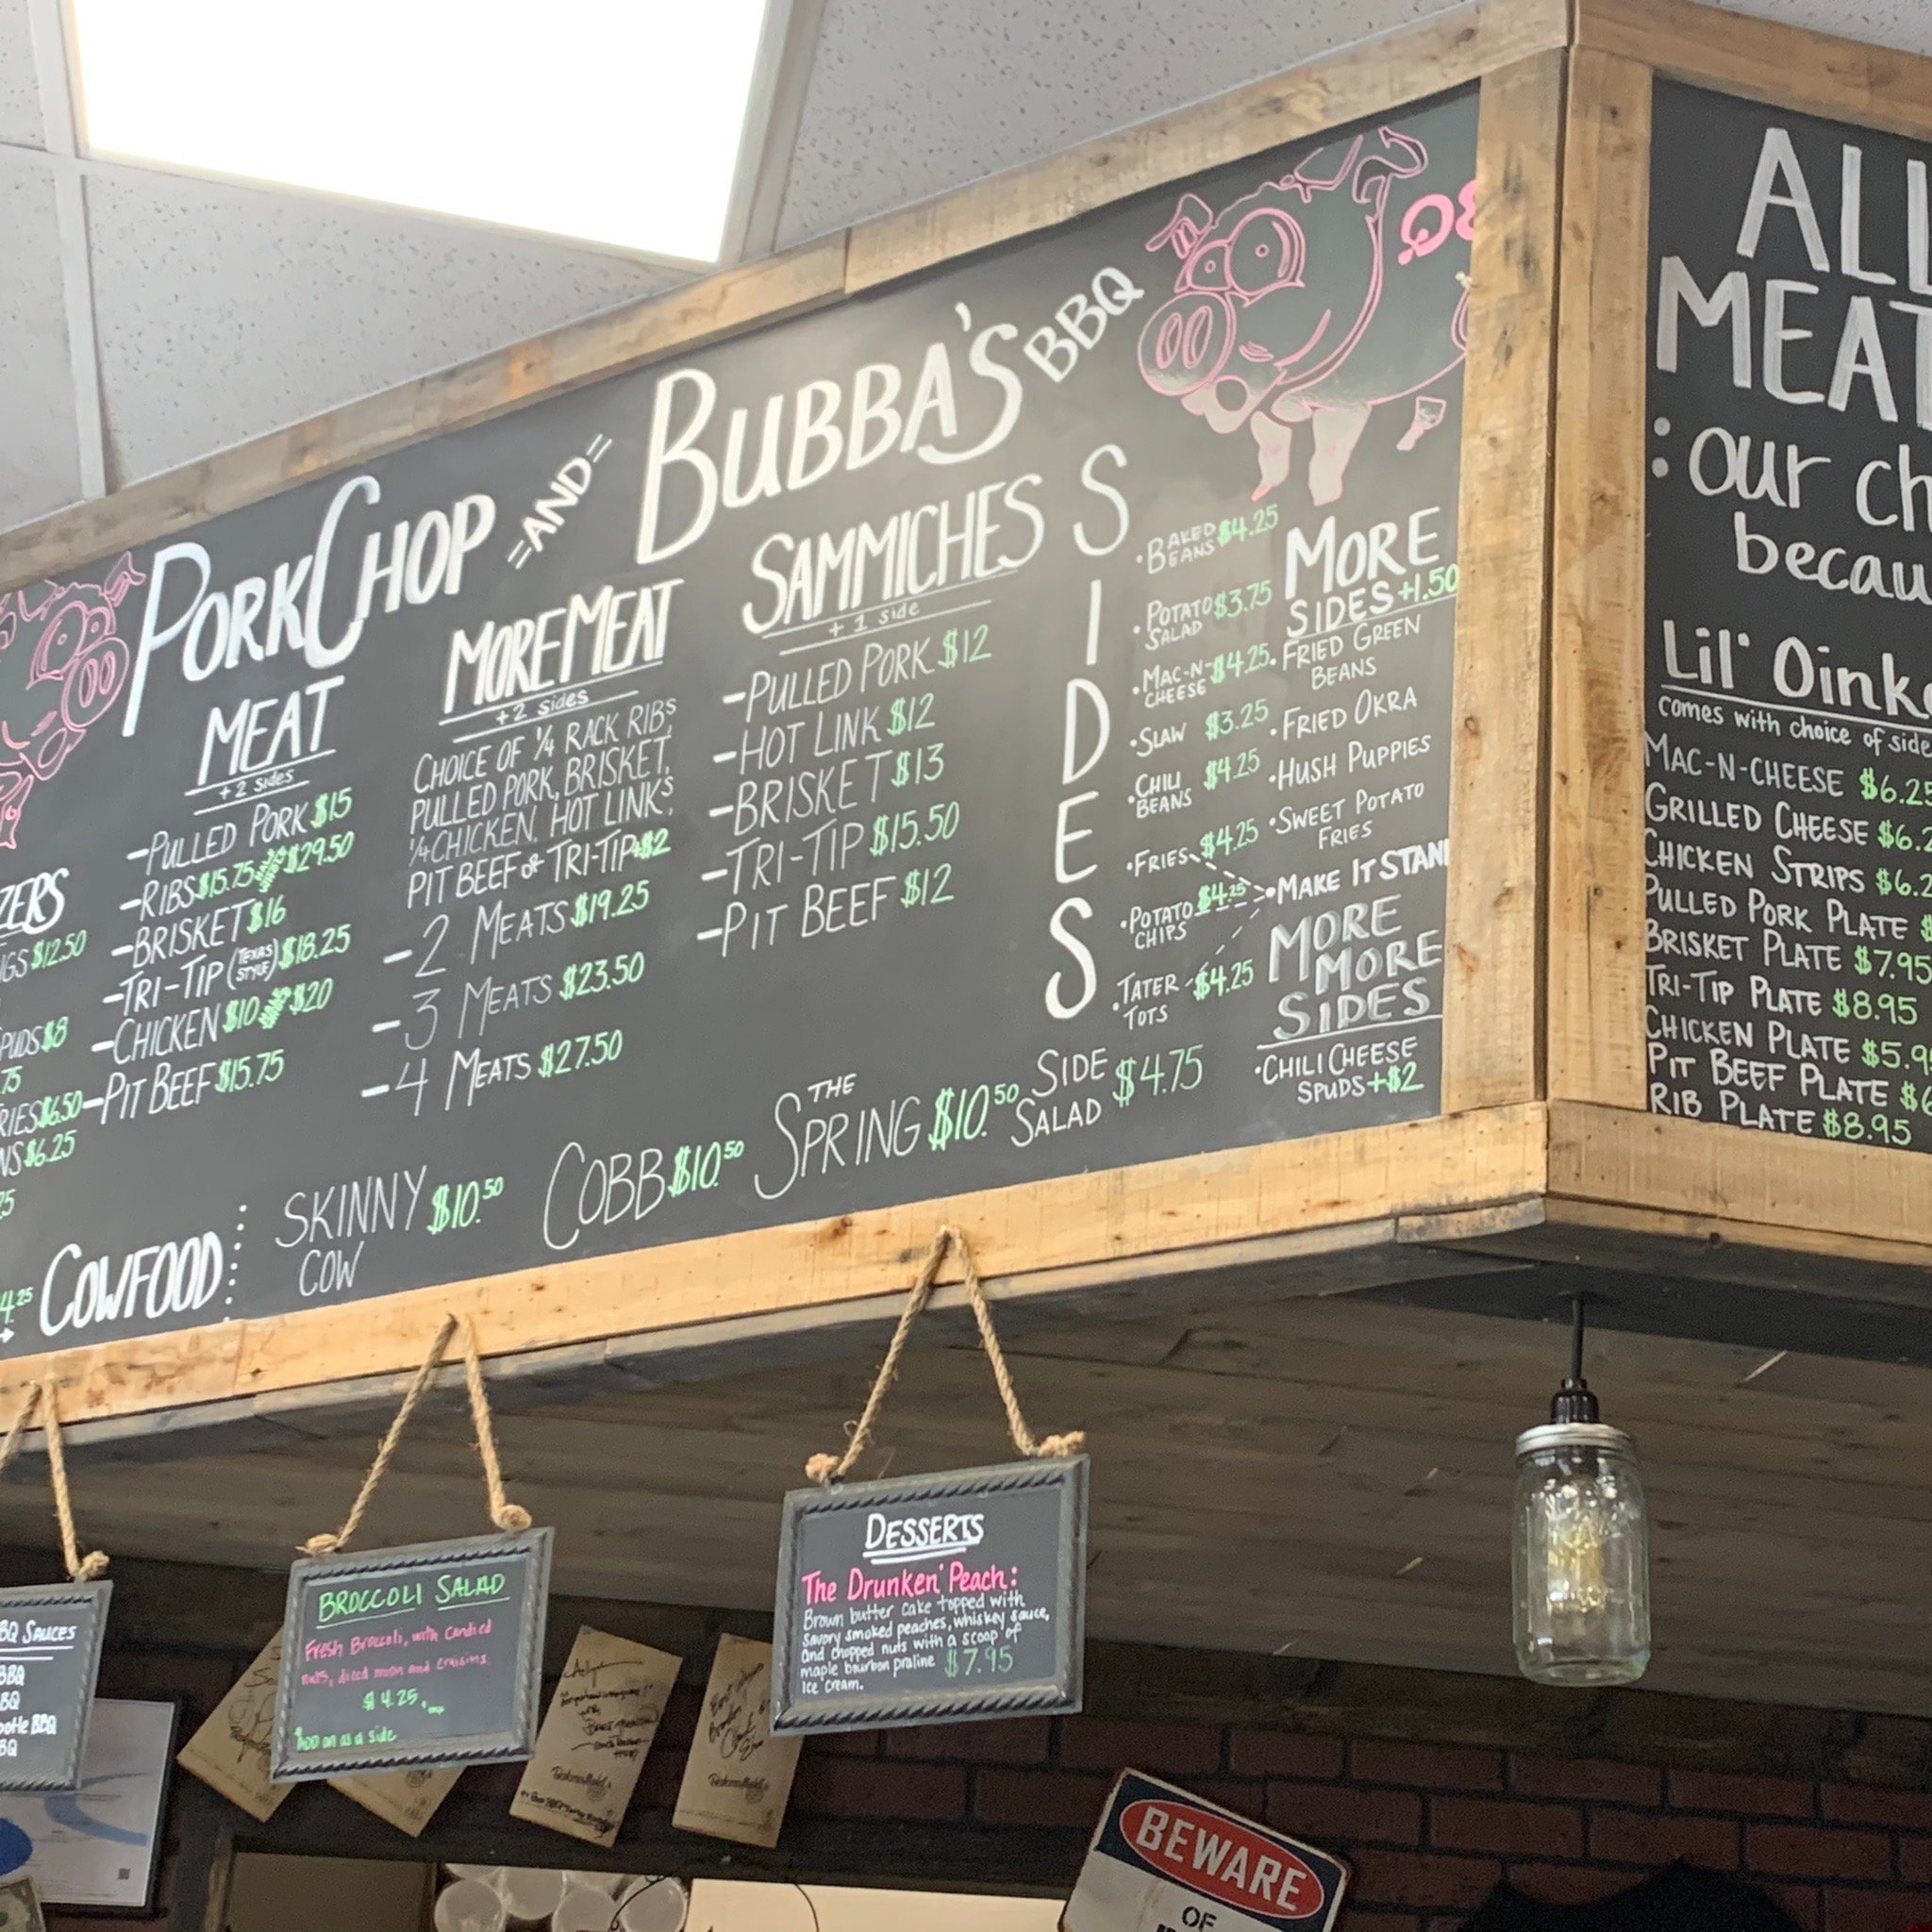 PORKCHOP =AND= BUBBA'S BBQ
ZERS
GS $12.50
PUDS $8
75
RIES $6.50
NS $6.25
MEAT
+2 sides
-PULLED PORK $15
-RIBS $15.75 $29.50
-BRISKET $16
-TRI-TIP (TEXAS STYLE) $18.25
-CHICKEN $10 $20
-PIT BEEF $15.75
MORE MEAT
+2 sides
CHOICE OF ¼ RACK RIBS
PULLED PORK, BRISKET,
¼ CHICKEN, HOT LINKS,
PIT BEEF or TRI-TIP +$2
-2 MEATS $19.25
-3 MEATS $23.50
-4 MEATS $27.50
SAMMICHES
+1 side
-PULLED PORK $12
-HOT LINK $12
-BRISKET $13
-TRI-TIP $15.50
-PIT BEEF $12
SIDES
•BAKED BEANS $4.25
•POTATO SALAD $3.75
•MAC-N-CHEESE $4.25
•SLAW $3.25
•CHILI BEANS $4.25
•FRIES $4.25
•POTATO CHIPS $4.25
•TATER TOTS $4.25
MORE
SIDES +1.50
•FRIED GREEN
BEANS
•FRIED OKRA
•HUSH PUPPIES
•SWEET POTATO
FRIES
•MAKE IT STAN
MORE
MORE
SIDES
•CHILI CHEESE
SPUDS +$2
4.25
COWFOOD
SKINNY COW $10.50
COBB $10.50
THE SPRING $10.50
SIDE SALAD $4.75
ALL
MEAT
: our ch
becau
Lil' Oink
comes with choice of side
MAC-N-CHEESE $6.25
GRILLED CHEESE $6.2
CHICKEN STRIPS $6.2
PULLED PORK PLATE $
BRISKET PLATE $7.95
TRI-TIP PLATE $8.95
CHICKEN PLATE $5.9
PIT BEEF PLATE $6
RIB PLATE $8.95
BQ SAUCES
BBQ
BQ
potle BBQ
BQ
BROCCOLI SALAD
Fresh Broccoli, with candied
nuts, diced onion and craisins.
$4.25
Add on as a side
DESSERTS
The Drunken' Peach:
Brown butter cake topped with
savory smoked peaches, whiskey sauce,
and chopped nuts with a scoop of
maple bourbon praline $7.95
Ice cream.
BEWARE
OF